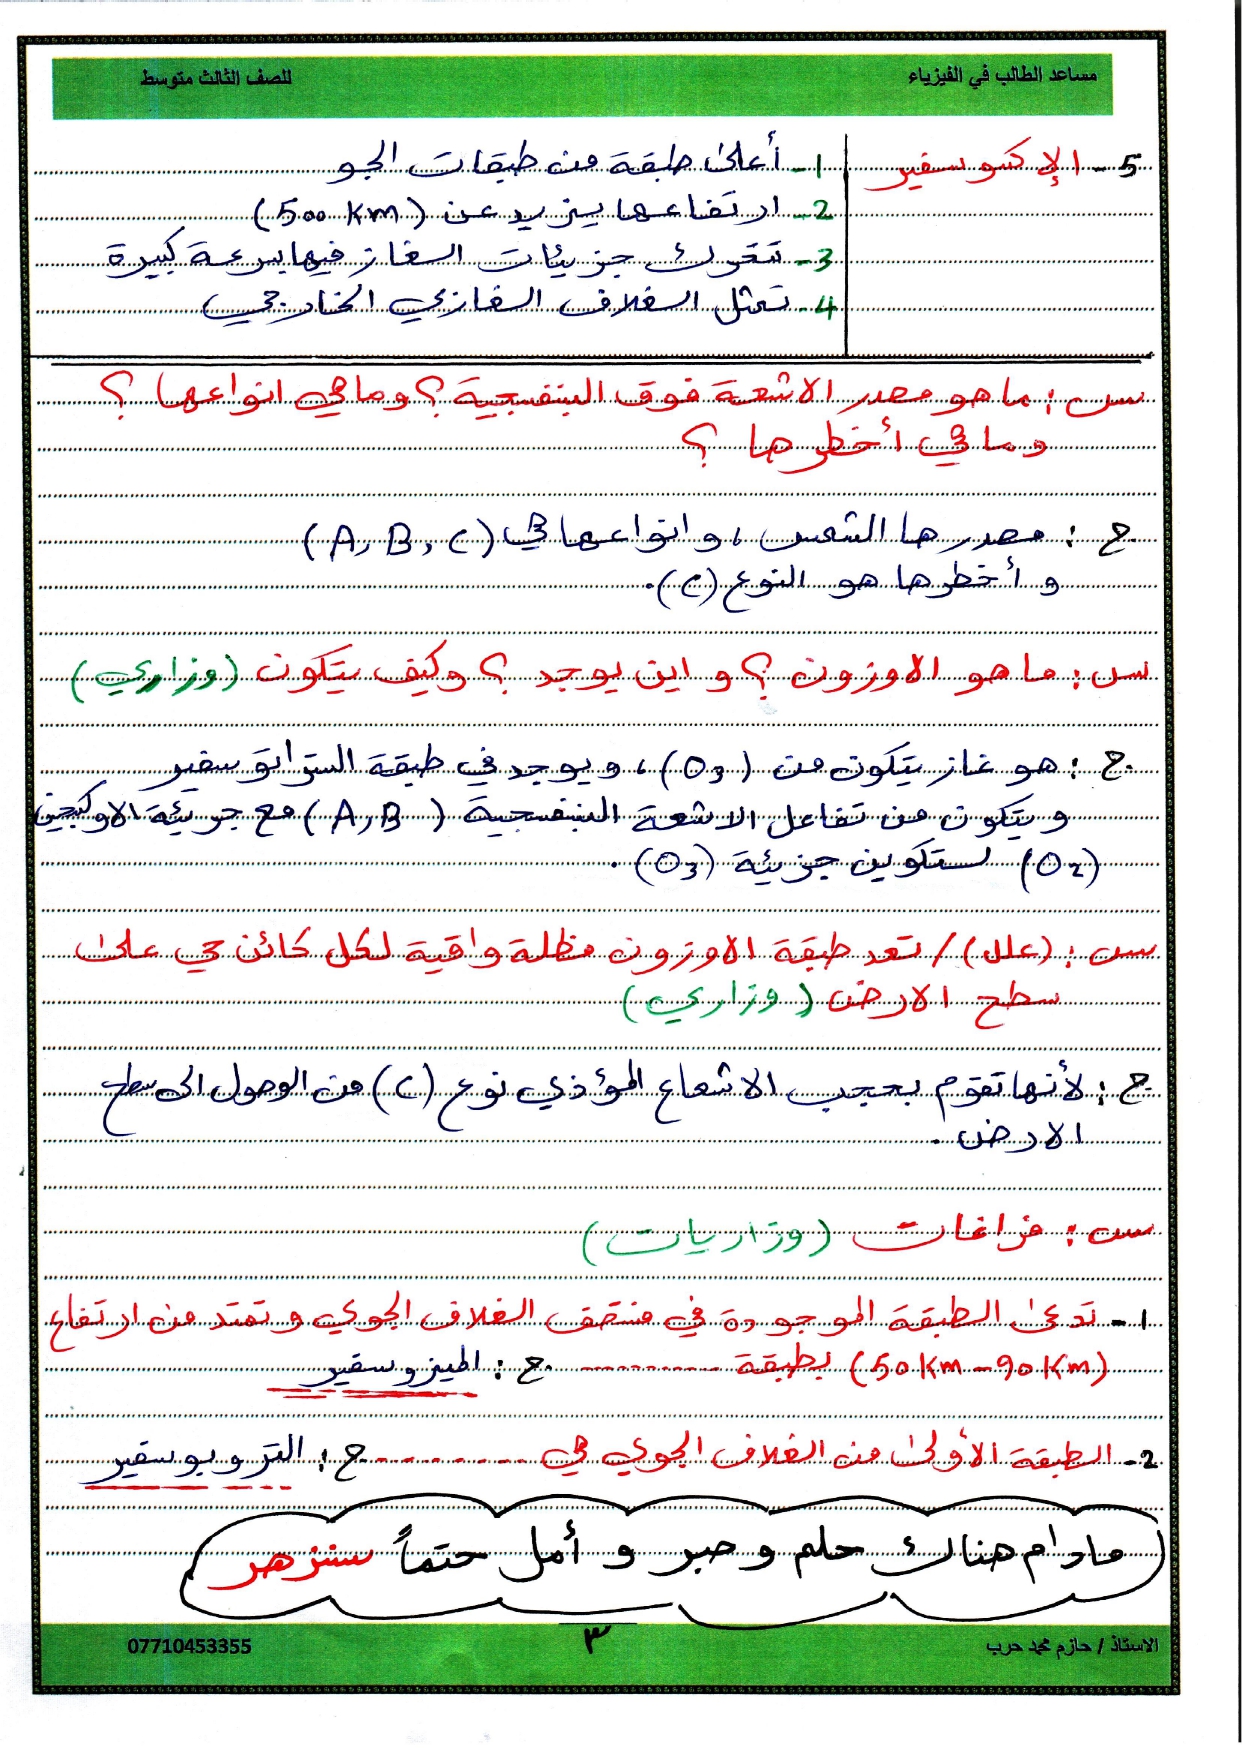 مساعد الطالب في الفيزياء للصف الثالث متوسط
5- الإكسوسفير 1- أعلى طبقة من طبقات الجو
2- ارتفاعها يزيد عن (500 Km)
3- تتحرك جزيئات الغاز فيها بسرعة كبيرة
4- تمثل الغلاف الغازي الخارجي
س: ما هو مصدر الاشعة فوق البنفسجية؟ وما هي انواعها؟
وما هي أخطرها؟
ج: مصدرها الشمس، وانواعها هي (A, B, C)
وأخطرها هو النوع (C).
س: ما هو الاوزون؟ واين يوجد؟ وكيف يتكون (وزاري)
ج: هو غاز يتكون من (O3)، ويوجد في طبقة الستراتوسفير
ويتكون من تفاعل الاشعة البنفسجية (A, B) مع جزيئة الاوكجين
(O2) لتكوين جزيئة (O3).
س: (علل) / تعد طبقة الاوزون مظلة واقية لكل كائن حي على
سطح الارض (وزاري)
ج: لأنها تقوم بحجب الاشعاع المؤذي نوع (C) من الوصول الى سطح
الارض.
س: فراغات (وزاريات)
1- تدعى الطبقة الموجودة في منتصف الغلاف الجوي وتمتد من ارتفاع
(50 Km - 90 Km) بطبقة ---------- ج: الميزوسفير
2- الطبقة الأولى من الغلاف الجوي هي --------- ج: التروبوسفير
مادام هناك حلم وصبر و أمل حتماً ستزهر
الاستاذ / حازم محمد حرب ٣ 07710453355